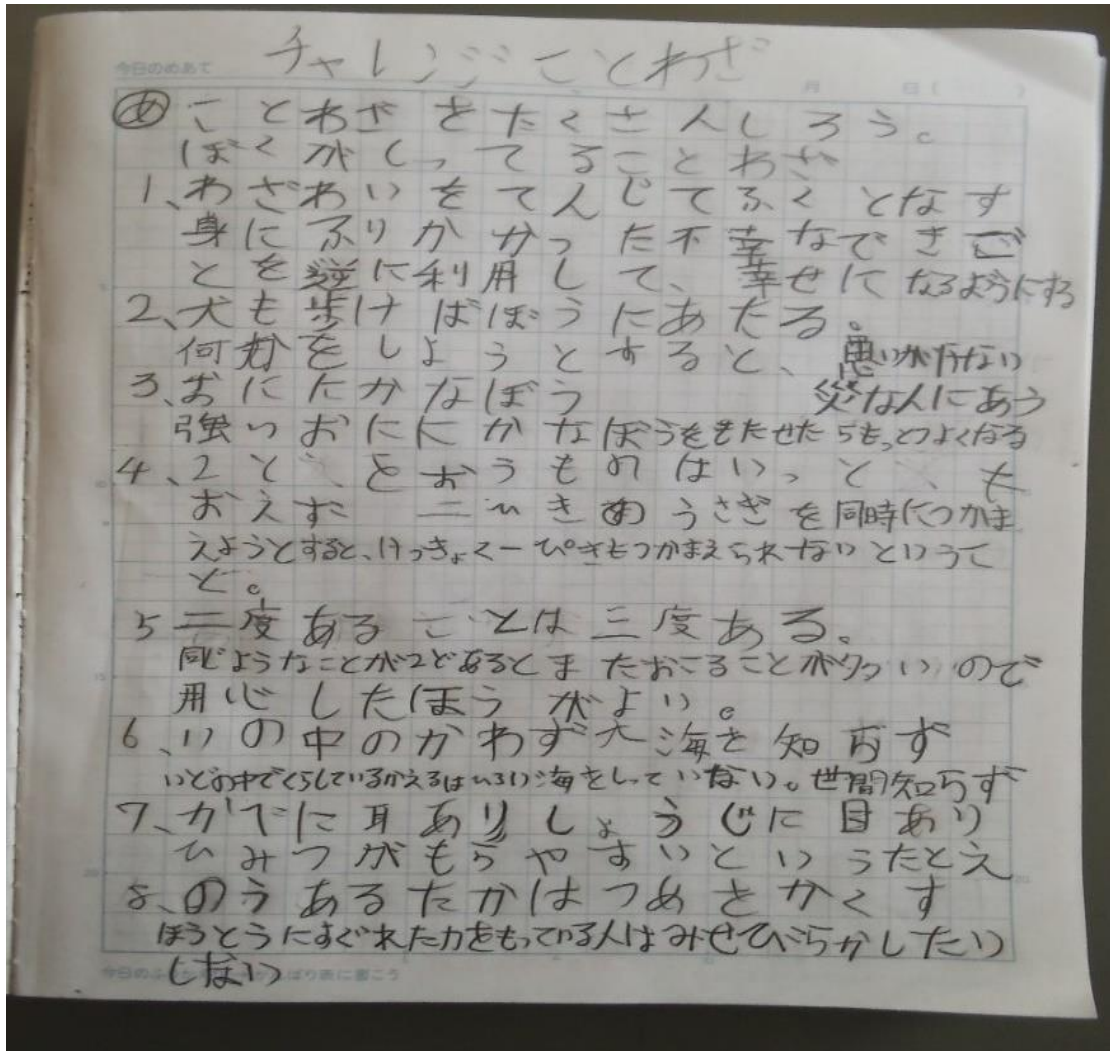 チャレンジことわざ
今日のめあて 月 日( )
あ ことわざをたくさんしろう。
ぼくがしってることわざ
1、わざわいをてんじてふくとなす
身にふりかかった不幸なできご
とを逆に利用して、幸せになるようにする
2、犬も歩けばぼうにあたる。
何かをしようとすると、思いがけない
災なんにあう
3、おにたかなぼう
強いおににかなぼうをもたせたらもっとつよくなる
4、2とをおうものはいっとも
おえず 二ひきのうさぎを同時につかま
えようとすると、けっきょく一ぴきもつかまえられないというこ
と。
5 二度あることは三度ある。
同じようなことが2どあるとまたおこることが多いので
用心したほうがよい。
6、いの中のかわず大海を知らず
いどの中でくらしているかえるはひろい海をしっていない。世間知らず
7、かべに耳ありしょうじに目あり
ひみつがもらやすいというたとえ
8、のうあるたかはつめをかくす
ほうとうにすぐれた力をもっている人はみせびらかしたり
しない